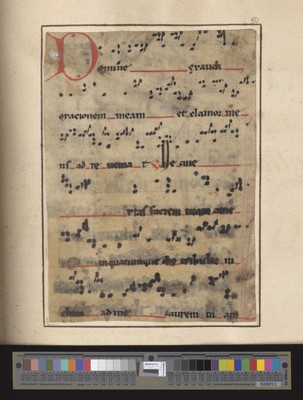 Domine exaudi
orationem meam et clamor me
us ad te veniat Ne aver
tas faciem tuam a me
in quacumque die tribulor in
clina ad me aurem tu am